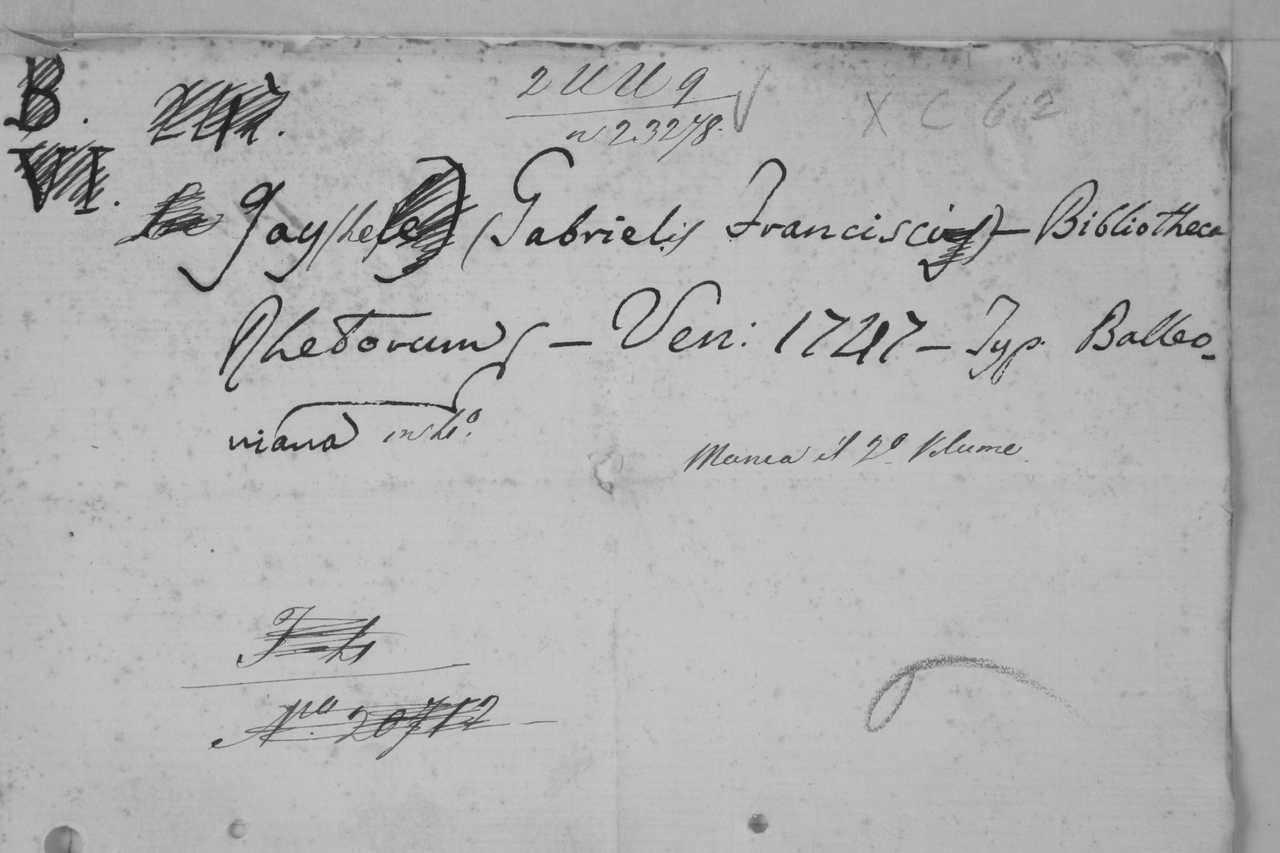 B.
VI.
2UU9
n 23278.
XC62
(Gabrielis Francisci) – Bibliotheca
Rhetorum – Ven: 1747 – Typ. Balleo-
niana in 4º.
Manca il 2º Volume
F 4
Nº. 20712